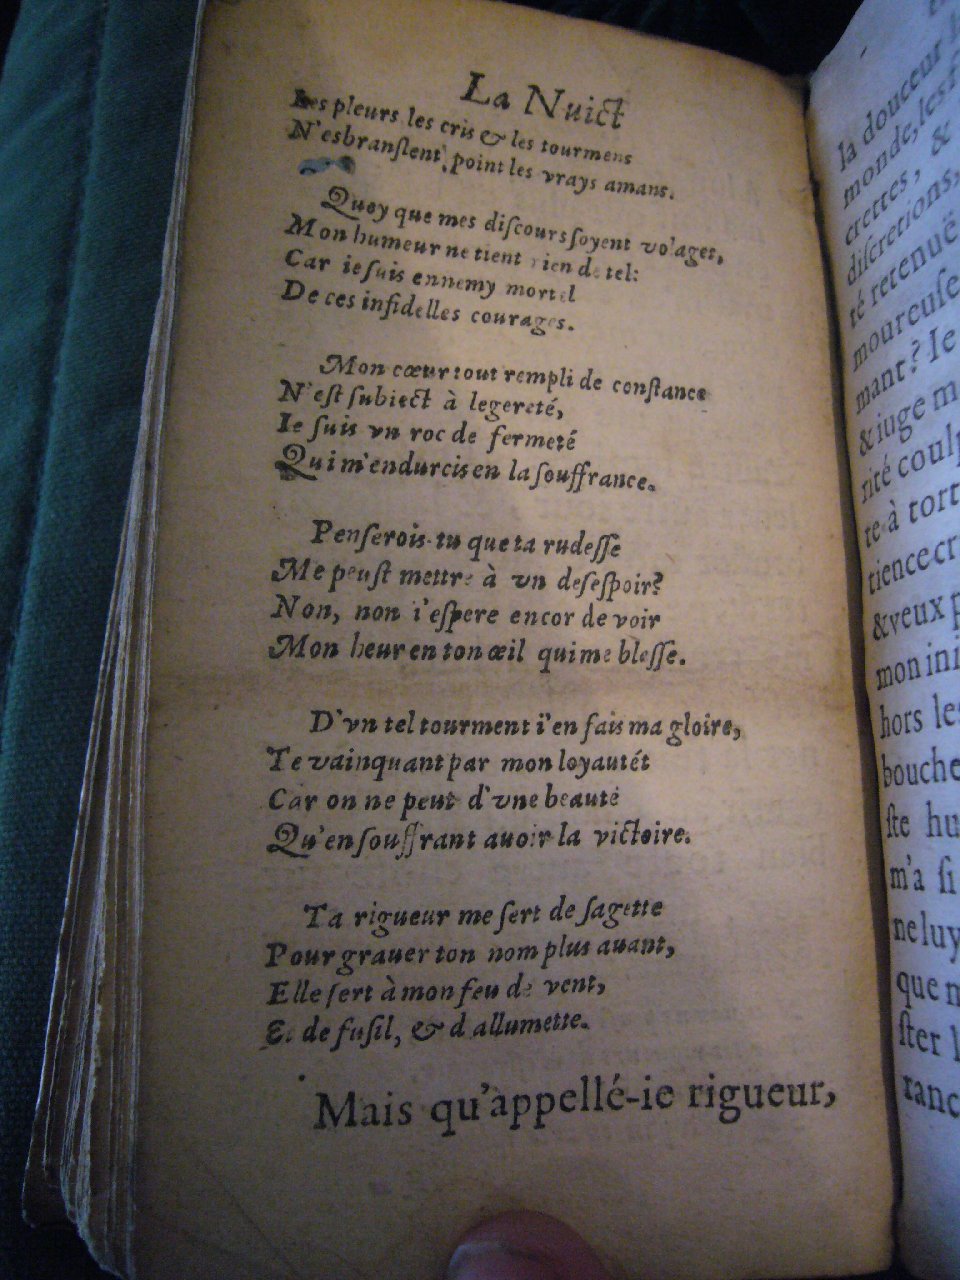 La Nuict
Les pleurs les cris & les tourmens
N'esbranslent point les vrays amans.
Quoy que mes discours soyent vo'ages,
Mon humeur ne tient rien de tel:
Car ie suis ennemy mortel
De ces infidelles courages.
Mon cœur tout rempli de constance
N'est subiect à legereté,
Ie suis vn roc de fermeté
Qui m'endurcis en la souffrance.
Penserois-tu que ta rudesse
Me peust mettre à vn desespoir?
Non, non i'espere encor de voir
Mon heur en ton œil qui me blesse.
D'vn tel tourment i'en fais ma gloire,
Te vainquant par mon loyautét
Car on ne peut d'vne beauté
Qu'en souffrant auoir la victoire.
Ta rigueur me sert de sagette
Pour grauer ton nom plus auant,
Elle sert à mon feu de vent,
Et de fusil, & d allumette.
Mais qu'appellé-ie rigueur,
la douceur
monde, les
crettes, &
discretions,
té retenuë
moureuse
mant? Ie
& iuge m
rité coulp
te à tort
tience cr
& veux p
mon ini
hors les
bouche
ste hu
m'a si
ne luy
que m
ster l
ranc